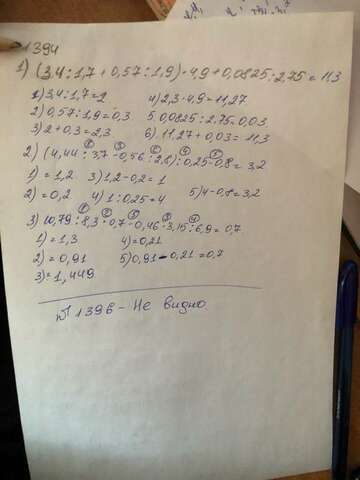 1394
1) (3,4:1,7+0,57:1,9)·4,9+0,0825:2,75=11,3
1) 3,4:1,7=2 4) 2,3·4,9=11,27
2) 0,57:1,9=0,3 5. 0,0825:2,75=0,03
3) 2+0,3=2,3 6) 11,27+0,03=11,3
2) (4,44:3,7-0,56:2,8):0,25-0,8=3,2
1) =1,2 3) 1,2-0,2=1
2) =0,2 4) 1:0,25=4 5) 4-0,8=3,2
3) 10,79:8,3·0,7-0,46·3,15:6,9=0,7
1) =1,3 4) =0,21
2) =0,91 5) 0,91-0,21=0,7
3) =1,449
№1396 - Не видно